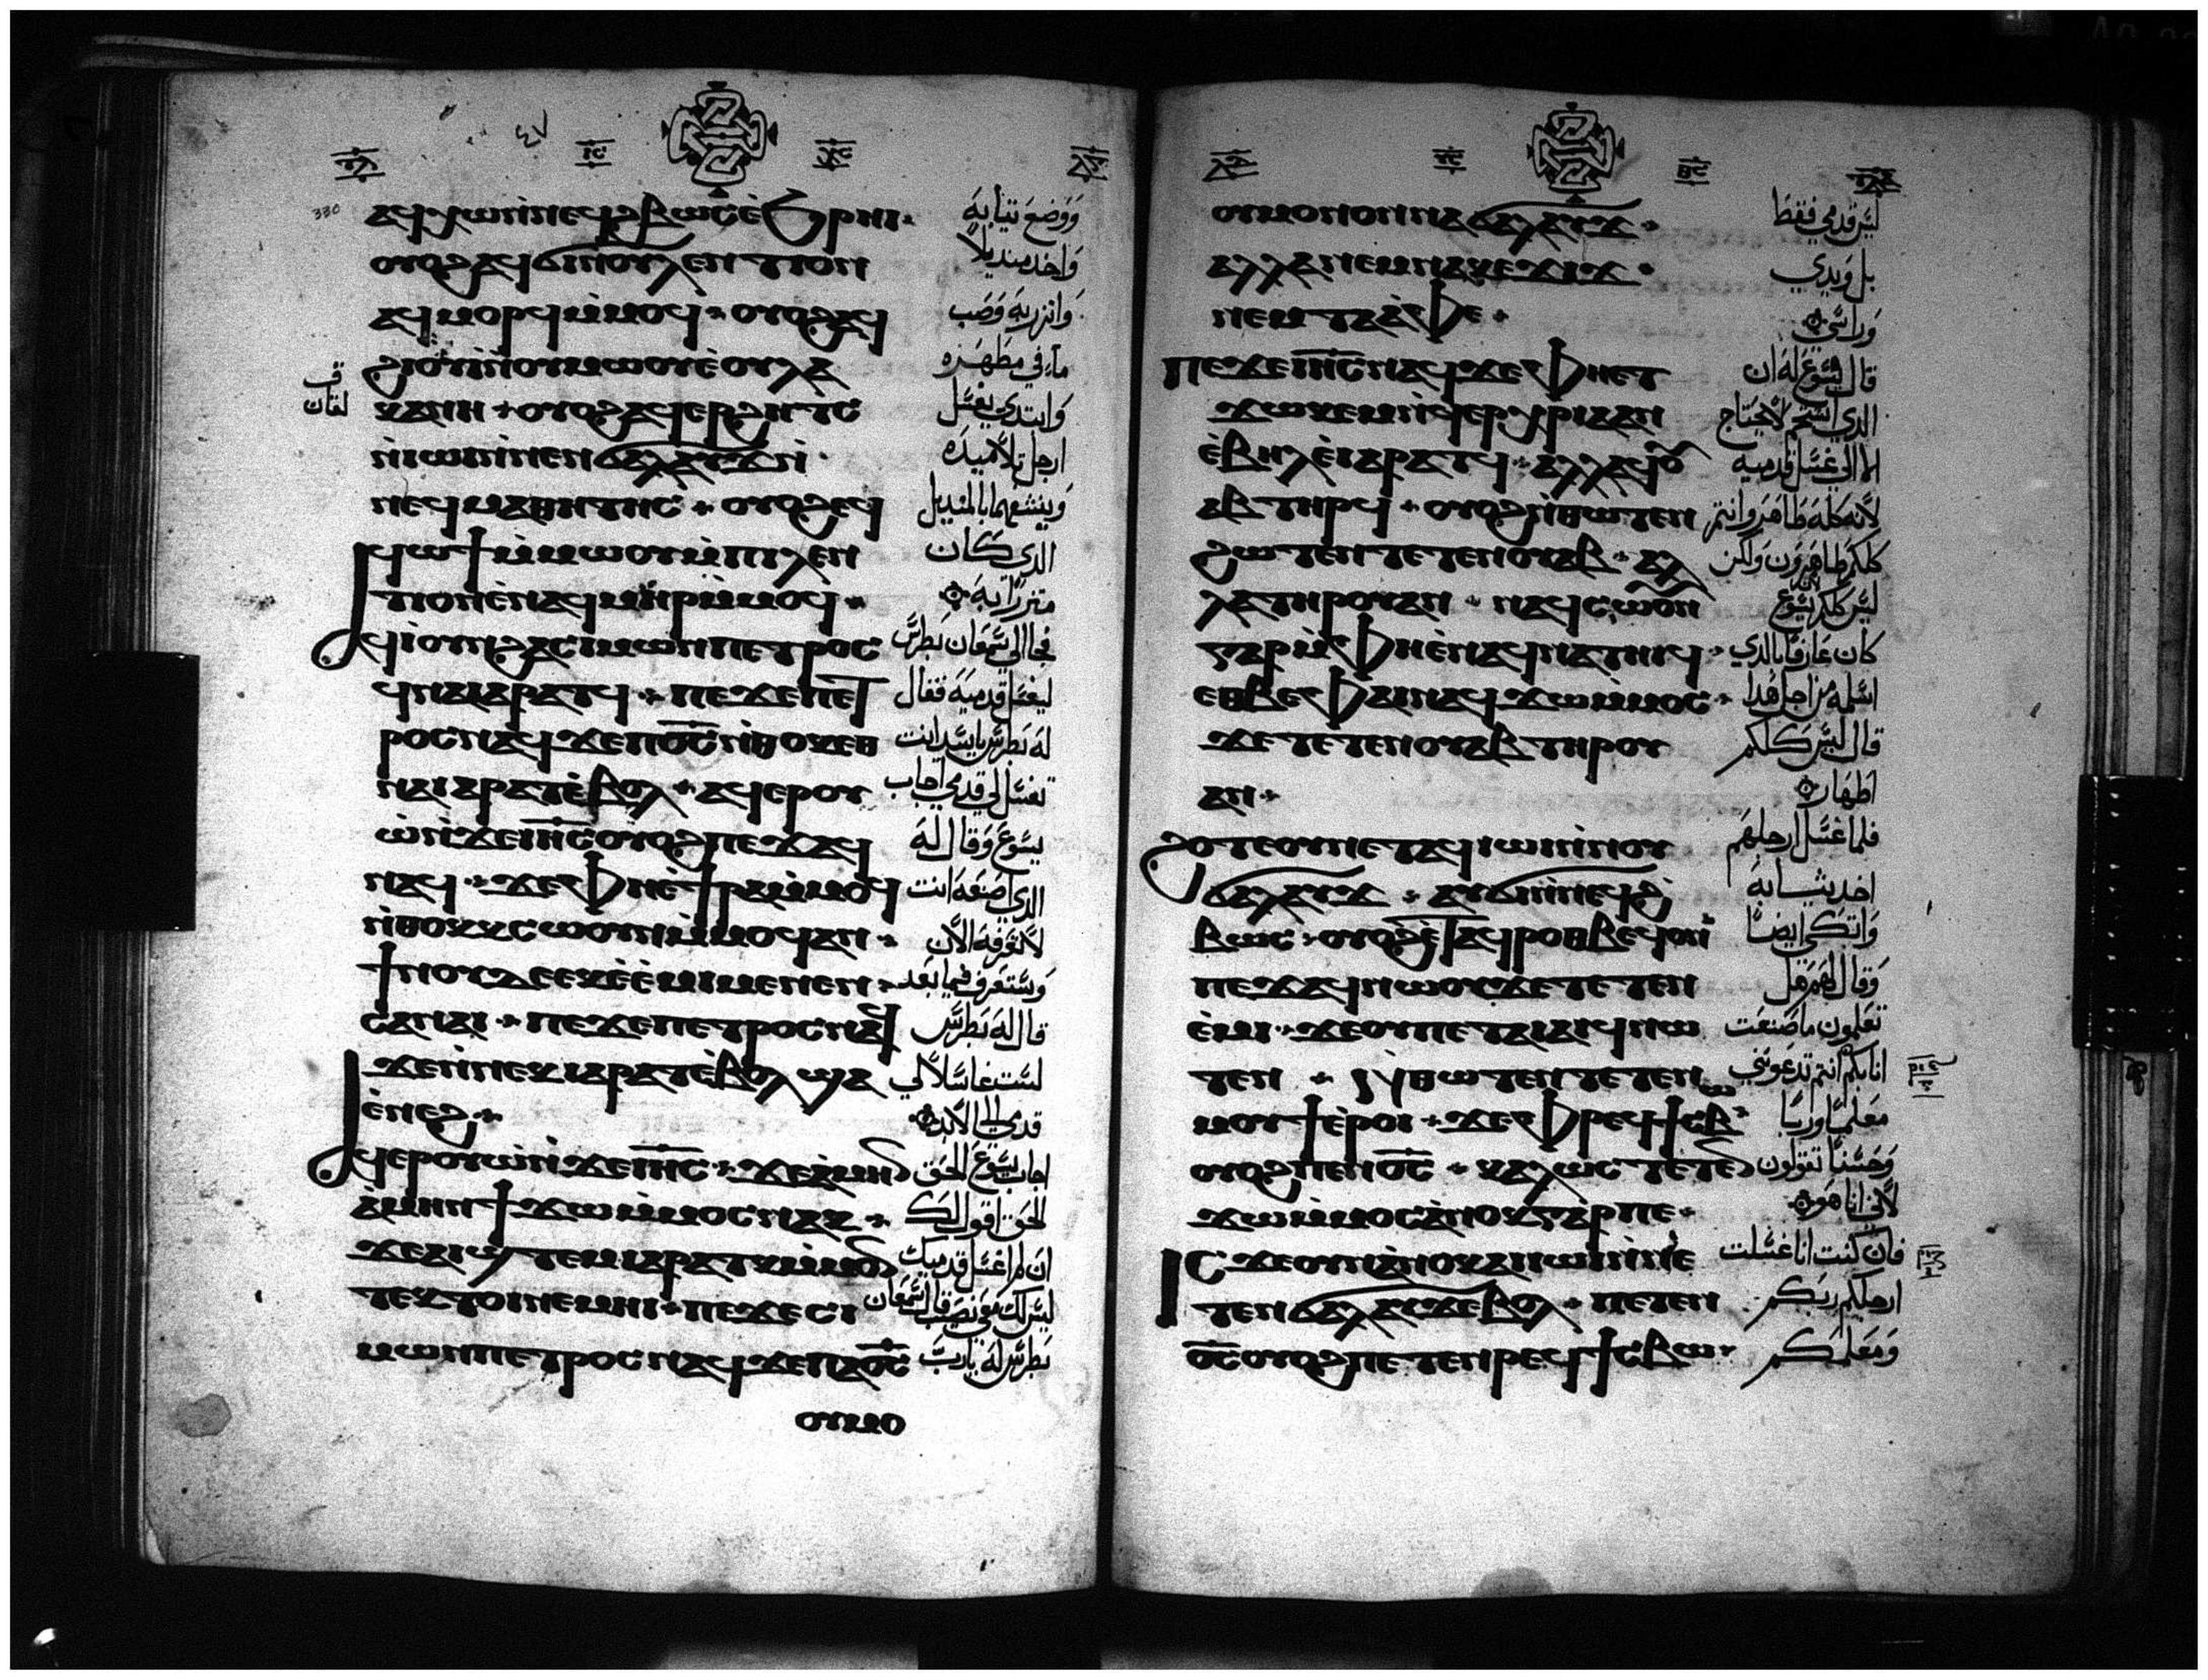 ⲁϥⲭⲱⲛ̀ⲛⲉϥϩⲃⲱⲥⲉ̀ϧⲣⲏⲓ·
ⲟⲩⲟϩⲁϥϭⲓⲛⲟⲩⲗⲉⲛⲧⲓⲟⲛ
ⲁϥⲙⲟⲣϥⲙ̀ⲙⲟϥ · ⲟⲩⲟϩⲁϥ
ϩⲓⲟⲩⲓⲛ̀ⲟⲩⲙⲱⲟⲩⲉ̀ⲟⲩⲗⲁ
ⲕⲁⲛⲏ · ⲟⲩⲟϩⲁϥⲉⲣϩⲏⲧⲥ
ⲛ̀ⲓⲱⲓⲛ̀ⲛⲉⲛϭⲁⲗⲁⲩϫⲛ̀
ⲛⲉϥⲙⲁⲑⲏⲧⲏⲥ · ⲟⲩⲟϩⲉϥ
ϥⲱϯⲙ̀ⲙⲱⲟⲩⲙ̀ⲡⲓⲗⲉⲛ
ⲧⲓⲟⲛⲉ̀ⲛⲁϥⲙⲏⲣⲙ̀ⲙⲟϥ ·
ϥⲓ̀ⲟⲩⲛϩⲁⲥⲓⲙⲱⲛⲡⲉⲧⲣⲟⲥ
ϥⲛⲁⲓⲁⲣⲁⲧϥ · ⲡⲉϫⲉⲡⲉⲧ
ⲣⲟⲥⲛⲁϥϫⲉⲡⲟ̅ⲥ̅ⲛ̀ⲑⲟⲕⲉⲑ
ⲛⲁⲓⲁⲣⲁⲧⲉ̀ⲃⲟⲗ · ⲁϥⲉⲣⲟⲩ
ⲱ̀ⲛ̀ϫⲉⲓⲏ̅ⲥ̅ⲟⲩⲟϩⲡⲉϫⲁϥ
ⲛⲁϥ · ϫⲉⲫⲏⲉ̀ϯⲣⲁⲙ̀ⲙⲟϥ
ⲛ̀ⲑⲟⲕⲕⲥⲱⲟⲩⲛⲙ̀ⲙⲟϥⲁⲛ ·
ϯⲛⲟⲩⲉⲕⲉ̀ⲉ̀ⲙⲓⲙⲉⲛⲉⲛ
ⲥⲁⲛⲁⲓ · ⲡⲉϫⲉⲡⲉⲧⲣⲟⲥⲛⲁϥ
ϫⲉⲛ̀ⲛⲉⲕⲓⲁⲣⲁⲧⲉ̀ⲃⲟⲗϣⲁ
ⲉ̀ⲛⲉϩ ·
ϥⲉⲣⲟⲩⲱ̀ⲛ̀ϫⲉⲓⲏ̅ⲥ̅ · ϫⲉⲁ̀ⲙⲏⲛ
ⲁ̀ⲙⲏⲛϯϫⲱⲙ̀ⲙⲟⲥⲛⲁⲕ ·
ϫⲉⲁⲓϣⲧⲉⲙⲓⲁⲣⲁⲧⲕⲙ̀ⲙⲟⲛ
ⲧⲉⲕⲧⲟⲓⲛⲉⲙⲏⲓ · ⲡⲉϫⲉⲥⲓ
ⲙⲱⲛⲡⲉⲧⲣⲟⲥⲛⲁϥϫⲉⲡⲁⲟ̅ⲥ̅
ⲟⲩⲙⲟ
ووضع ثيابه
واخد منديلاً
واتزر به وصب
ماء في مطهره
وابتدي يغسل
ارجل تلاميذه
وينشفهما بالمنديل
الدي كان
متزراً به
فجا الي سمعان بطرس
ليغسل قدميه فقال
له بطرس يا سيد انت
تغسل لي قدمي اجاب
يسوع وقال له
الدي اصنعه انت
لا تعرفه الان
وستعرف فيما بعد
قال له بطرس
لست غاسلاً لي
قدمي الي الابد
اجاب يسوع الحق
الحق اقول لك
ان لم اغسل قدميك
ليس لك معي نصيب قال سمعان
بطرس له يارب
ⲟⲩⲙⲟⲛⲟⲛⲛⲁϭⲁⲗⲁⲩϫ ·
ⲁⲗⲗⲁⲛⲉⲙⲛⲁⲕⲉϫⲓϫ ·
ⲛⲉⲙⲧⲁⲁ̀ⲫⲉ ·
ⲡⲉϫⲉⲓⲏ̅ⲥ̅ⲛⲁϥϫⲉⲫⲏⲉⲧ
ϫⲱⲕⲉⲙⲛ̀ϥⲉⲣⲭⲣⲓⲁⲁⲛ
ⲉ̀ⲃⲏⲗⲉ̀ⲓⲁⲣⲁⲧϥ · ⲁⲗⲗⲁϥⲟⲩ
ⲁⲃⲧⲏⲣϥ · ⲟⲩⲟϩⲛ̀ⲑⲱⲧⲉⲛ
ϩⲱⲧⲉⲛⲧⲉⲧⲉⲛⲟⲩⲁⲃ · ⲁⲗ
ⲗⲁⲧⲏⲣⲟⲩⲁⲛ · ⲛⲁϥⲥⲱⲟⲩⲛ
ⲅⲁⲣⲙ̀ⲫⲏⲉ̀ⲛⲁϥⲛⲁⲧⲏⲓϥ ·
ⲉⲑⲃⲉⲫⲁⲓⲛⲁϥϫⲱⲙ̀ⲙⲟⲥ ·
ϫⲉⲧⲉⲧⲉⲛⲟⲩⲁⲃⲧⲏⲣⲟⲩ
ⲁⲛ ·
ϩⲟⲧⲉⲟⲩⲛⲉⲧⲁϥⲓⲱⲓⲛ̀ⲛⲟⲩ
ϭⲁⲗⲁⲩϫ · ⲁϥϭⲓⲛ̀ⲛⲉϥϩ̀
ⲃⲱⲥ · ⲟⲩⲟϩⲉ̀ⲧⲁϥⲣⲟⲑⲃⲉϥⲟⲛ
ⲡⲉϫⲁϥⲛⲱⲟⲩϫⲉⲧⲉⲧⲉⲛ
ⲉ̀ⲙⲓ · ϫⲉⲟⲩⲡⲉⲧⲁⲓⲁⲓϥⲛⲱ
ⲧⲉⲛ · ⲛ̀ⲑⲱⲧⲉⲛⲧⲉⲧⲉⲛ
ⲙⲟⲩϯⲉ̀ⲣⲟⲓ · ϫⲉⲫⲣⲉϥϯⲥⲃⲱ
ⲟⲩⲟϩⲡⲉⲛⲟ̅ⲥ̅ · ⲕⲁⲗⲱⲥⲧⲉⲧⲉⲛ
ϫⲱⲙ̀ⲙⲟⲥⲁ̀ⲛⲟⲕⲅⲁⲣⲡⲉ ·
ⲓⲥϫⲉⲟⲩⲛⲁ̀ⲛⲟⲕⲁⲓⲓⲱⲓⲛ̀ⲛⲉ
ⲧⲉⲛϭⲁⲗⲁⲩϫⲉⲃⲟⲗ · ⲡⲉⲧⲉⲛ
ⲟ̅ⲥ̅ⲟⲩⲟϩⲡⲉⲧⲉⲛⲣⲉϥϯⲥⲃⲱ ·
ليس قدمي فقط
بل ويدي
وراسي
قال يسوع له ان
الدي استحم لا يحتاج
الا الي غسل قدميه
لانه كله طاهر وانتم
كلكم طاهرون ولكن
ليس كلكم يسوع
كان عارفا بالدي
اسلمه من اجل هدا
قال ليس كلكم
اطهار
فلما غسل ارجلهم
اخد ثيابه
واتكي ايضاً
وقال لهم هل
تعلمون ما صنعت
انا بكم انتم تدعونني
معلماً ورباً
وحسناً تقولون
لاني انا هو
فان كنت انا غسلت
ارجلكم ربكم
ومعلمكم